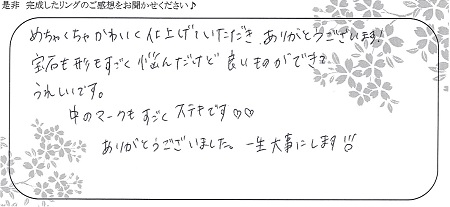 是非 完成したリングのご感想をお聞かせください♪
めちゃくちゃかわいく仕上げていただき、ありがとうございます!
宝石も形もすごく悩んだけど良いものができて
うれしいです。
中のマークもすごくステキです♡♡
ありがとうございました。一生大事にします!!